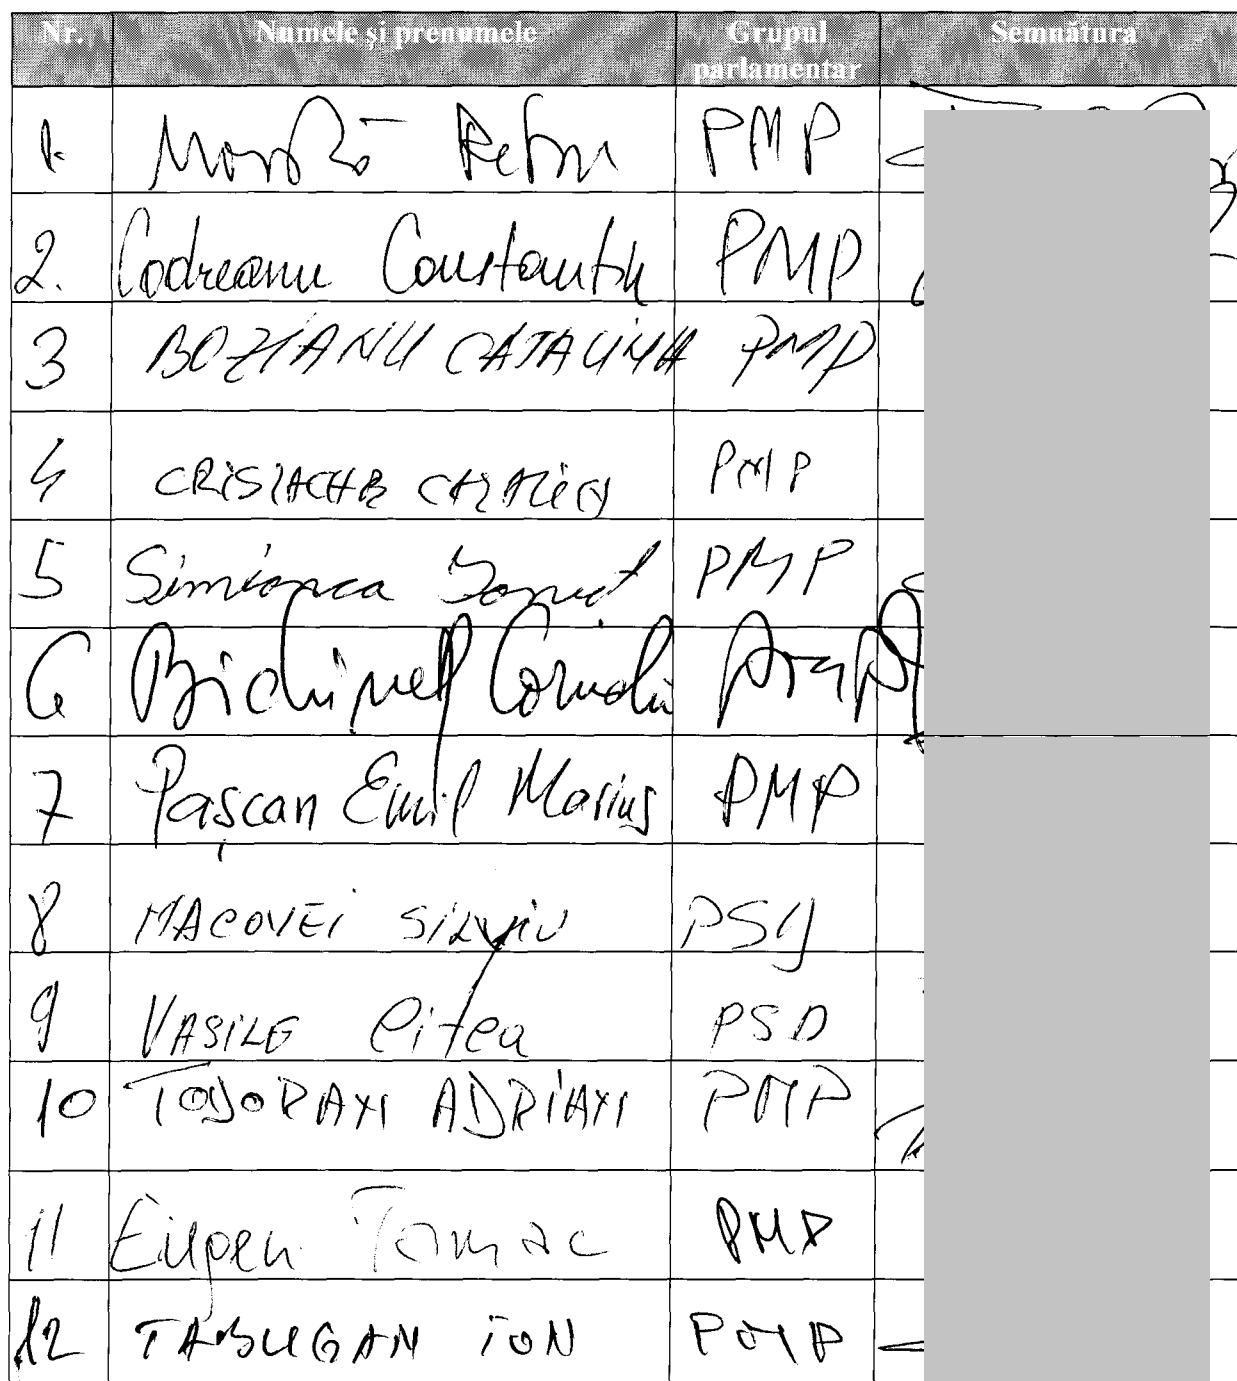 Nr. Numele și prenumele Grupul parlamentar Semnătura
1. Movilă Petru PMP
2. Codreanu Constantin PMP
3 BOZIANU CATALINA PMP
4 CRISTACHE CATALIN PMP
5 Simionca Ionuț PMP
6 Bichineț Corneliu PMP
7 Pașcan Emil Marius PMP
8 MACOVEI SILVIU PSD
9 VASILE Citea PSD
10 TODORAN ADRIAN PMP
11 Eugen Tomac PMP
12 TABUGAN ION PMP